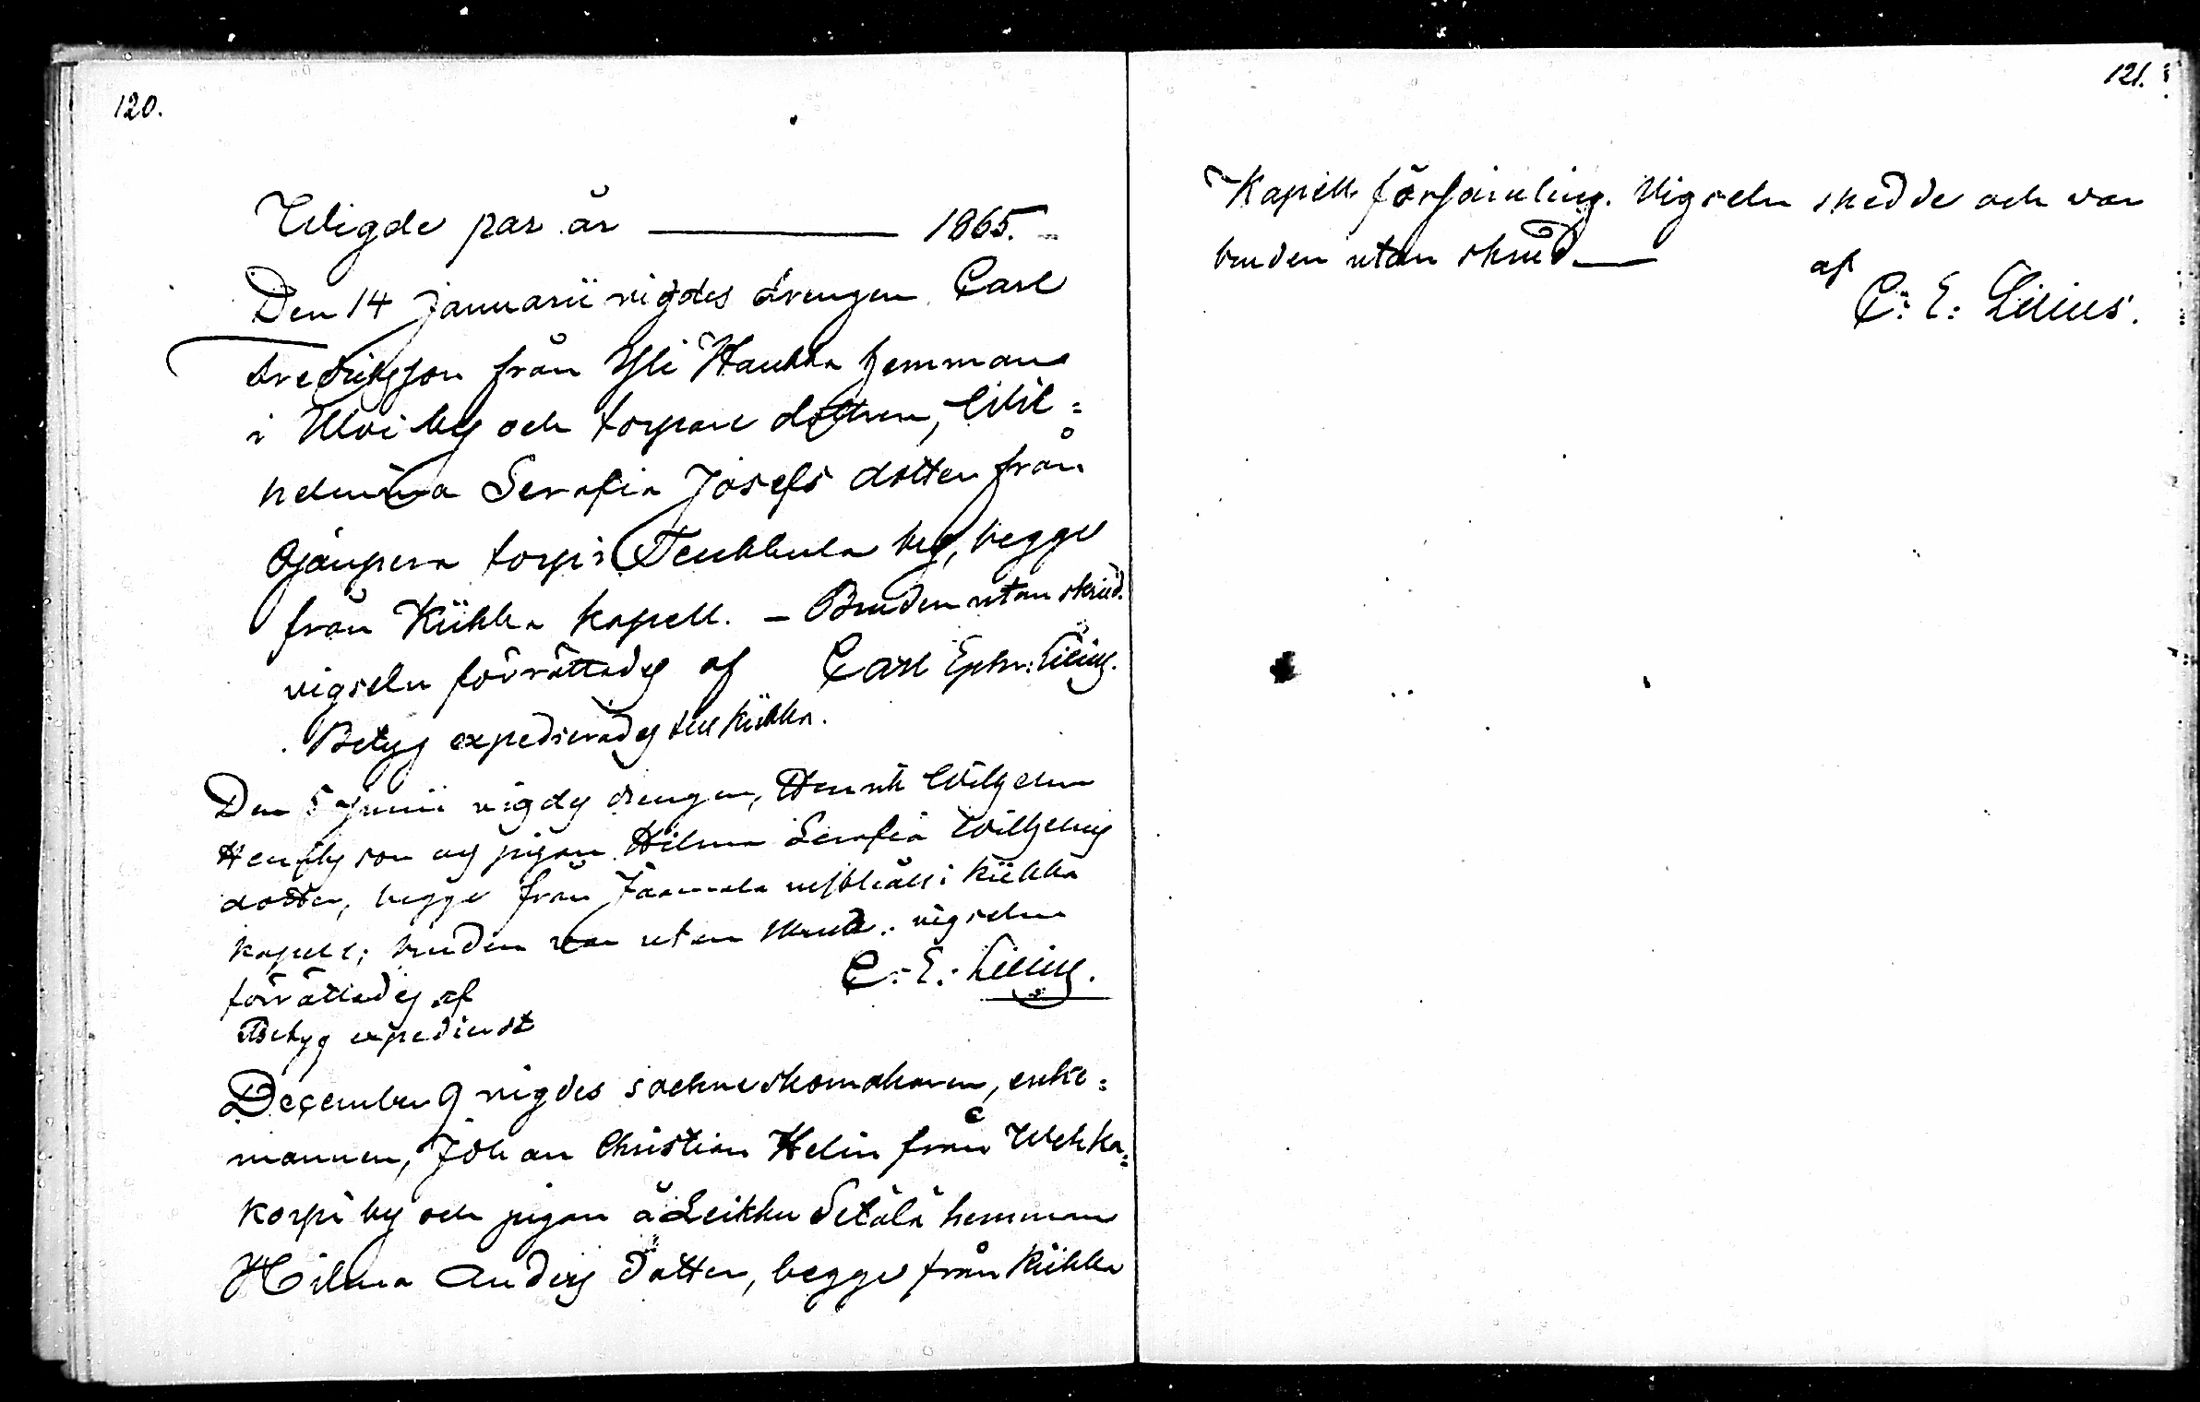 120.
Wigde par år ——— 1865.
Den 14 Januarii vigdes drengen Carl
Fredriksson från Yli Haukka hemman
i Ulvi by och torpare dottren, Wil=
helmina Serafia Josefs dotter från
Ojänperä torp i Teukkula by, begge
från Kiikka kapell. – Bruden utan skrud.
vigseln förrättades af Carl Ephr: Lilius.
Betyg expedierades till Kiikka.
Den 5 Junii vigdes drengen, Henrik Wilhelm
Henriksson og pigan Hilma Serafia Wilhelms
dotter, begge från Jaamala i Kiikka
kapell; bruden var utan skrud. vigseln
förrättades af C: E: Lilius.
Betyg expedierat
December 9 vigdes sockneskomakaren, enke=
mannen, Johan Christian Helin från Wehka=
korpi by och pigan å Leikku Setälä hemman
Hilma Anders dotter, begge från Kiikka
121.
Kapells församling. Vigseln skedde och var
bruden utan skrud—
af
C: E: Lilius.